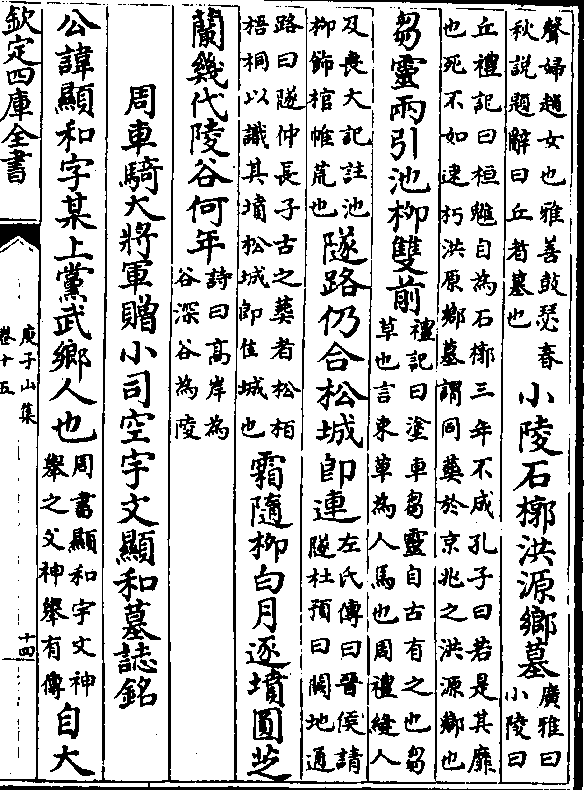 聲婦趙女也雅善鼓瑟春
秋說題辭曰丘者墓也
小陵石槨洪源鄉墓
廣雅曰
小陵曰
丘禮記曰桓魋自為石槨三年不成孔子曰若是其靡
也死不如速朽洪原鄉墓謂同葬於京兆之洪源鄉也
芻靈兩引池柳雙前
禮記曰塗車芻靈自古有之也芻
草也言束草為人馬也周禮縫人
及喪大記註池
柳飾棺帷荒也
隧路仍合松城即連
左氏傳曰晉侯請
隧杜預曰闕地通
路曰隧仲長子古之葬者松柏
梧桐以識其墳松城即佳城也
霜隨柳白月逐墳圓芝
蘭幾代陵谷何年
詩曰高岸為
谷深谷為陵
周車騎大將軍贈小司空宇文顯和墓誌銘
公諱顯和字某上黨武鄉人也
周書顯和宇文神
舉之父神舉有傳
自大
欽定四庫全書
庾子山集
卷十五
十四